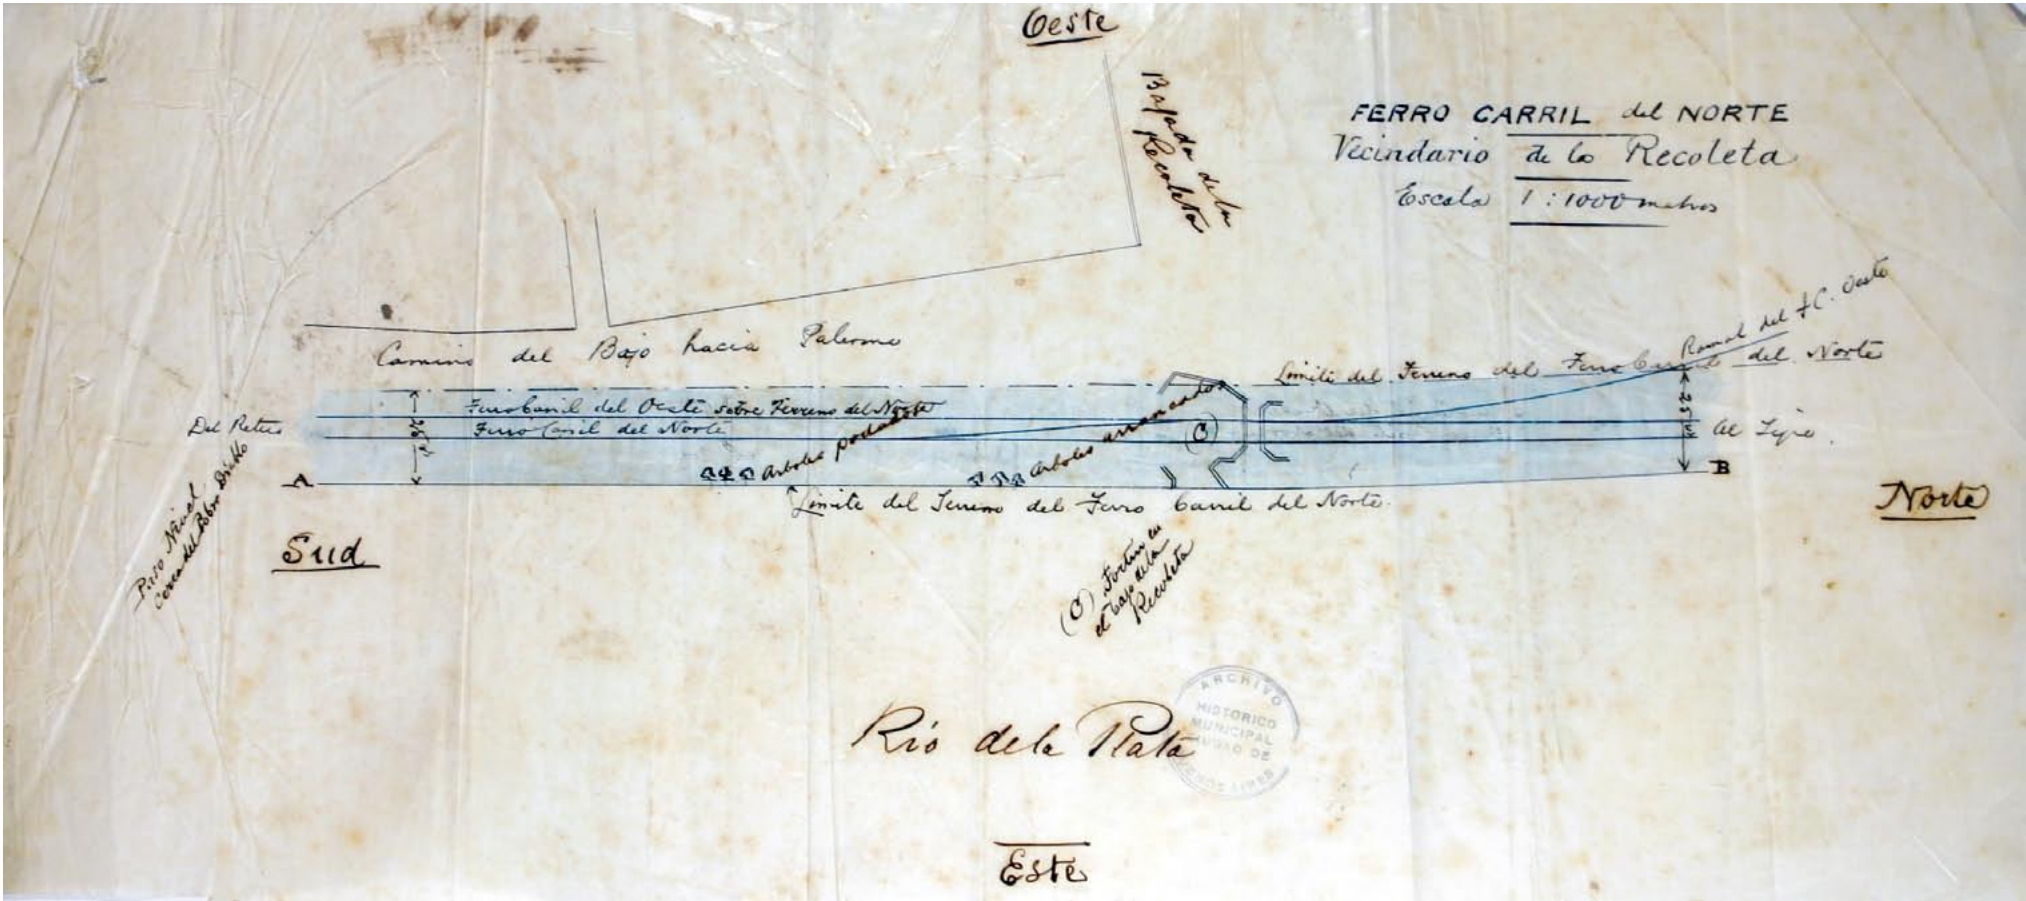 Oeste
Bajada de la
Recoleta
FERRO CARRIL del NORTE
Vecindario de la Recoleta
Escala 1:1000 metros
Camino del Bajo hacia Palermo
Ramal del F.C. Oeste
Limite del Terreno del Ferro Carril del Norte
Ferro Carril del Oeste sobre Terreno del Norte
Del Retiro
Ferro Carril del Norte
arboles podados
arboles arrancados
(C)
Al Tigre.
A
B
Limite del Terreno del Ferro Carril del Norte.
Norte
Sud
Paso Nivel
cerca del Pobre Diablo
(C) Fortin en
el bajo de la
Recoleta
Río de la Plata
ARCHIVO
HISTORICO
MUNICIPAL
CIUDAD DE
BUENOS AIRES
Este